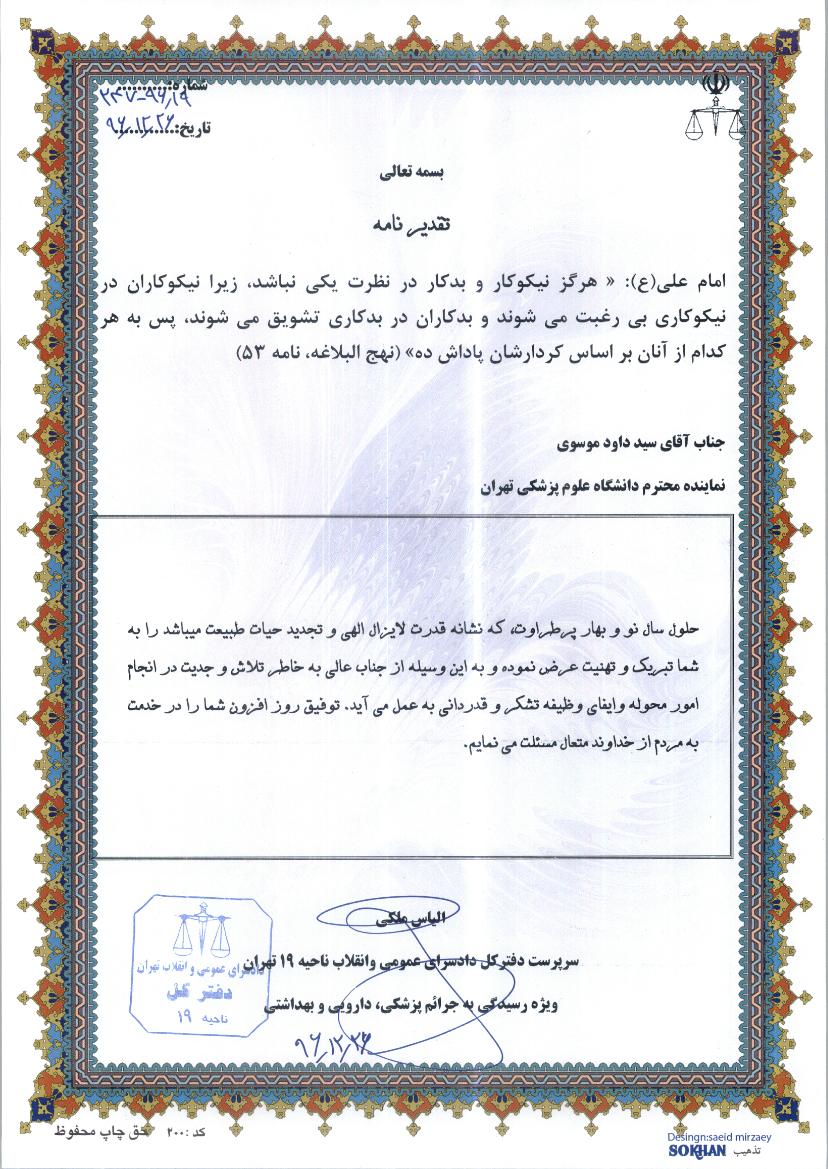 شماره:............
۲۴۷-۹۶٫۱۹
تاریخ:............
۹۶٫۱۲٫۲۶
بسمه تعالی
تقدیر نامه
امام علی(ع): « هرگز نیکوکار و بدکار در نظرت یکی نباشد، زیرا نیکوکاران در
نیکوکاری بی رغبت می شوند و بدکاران در بدکاری تشویق می شوند، پس به هر
کدام از آنان بر اساس کردارشان پاداش ده» (نهج البلاغه، نامه ۵۳)
جناب آقای سید داود موسوی
نماینده محترم دانشگاه علوم پزشکی تهران
حلول سال نو و بهار پرطراوت، که نشانه قدرت لایزال الهی و تجدید حیات طبیعت میباشد را به
شما تبریک و تهنیت عرض نموده و به این وسیله از جناب عالی به خاطر تلاش و جدیت در انجام
امور محوله وایفای وظیفه تشکر و قدردانی به عمل می آید. توفیق روز افزون شما را در خدمت
به مردم از خداوند متعال مسئلت می نمایم.
الیاس ملکی
سرپرست دفترکل دادسرای عمومی وانقلاب ناحیه ۱۹ تهران
ویژه رسیدگی به جرائم پزشکی، دارویی و بهداشتی
۹۶٫۱۲٫۲۶
دادسرای عمومی و انقلاب تهران
دفتر کل
ناحیه ۱۹
کد :۲۰۰ حق چاپ محفوظ
Desingn:saeid mirzaey
تذهیب SOKHAN